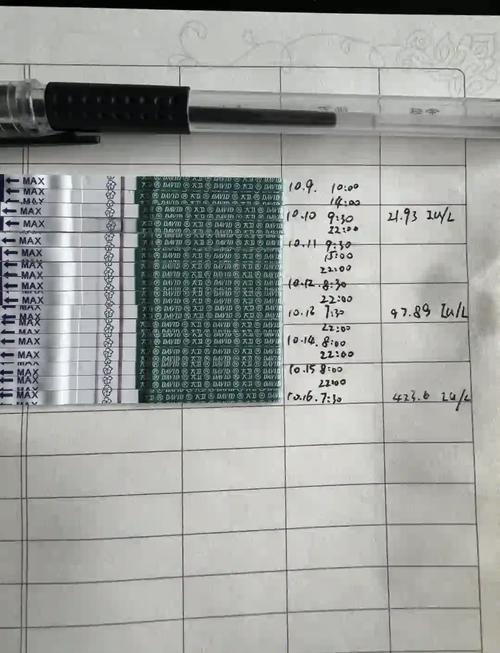 MAX 10.9. 10:00
MAX 14:00
MAX 10.10 9:30 21.93 IU/L
MAX 22:00
MAX 10.11 9:30
MAX 15:00
MAX 22:00
MAX 10.12. 8:30
MAX 22:00
MAX 10.13 7:30 97.89 IU/L
MAX 22:00
MAX 10.14. 8:00
MAX 22:00
MAX 10.15 8:00
MAX 22:00
MAX 10.16. 7:30 423.6 IU/L
DAVID 大卫